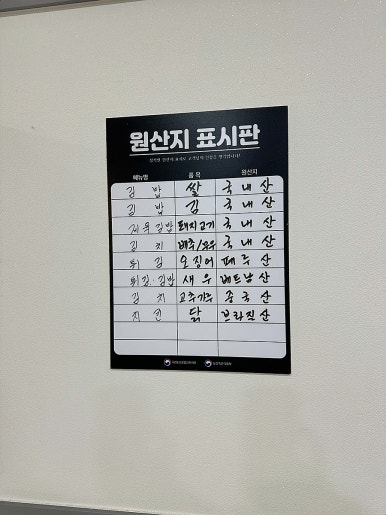 원산지 표시판
메뉴명 품목 원산지
김밥 쌀 국내산
김밥 김 국내산
제육김밥 돼지고기 국내산
김치 배추/무우 국내산
튀김 오징어 페루산
튀김.김밥 새우 베트남산
김치 고추가루 중국산
치킨 닭 브라질산